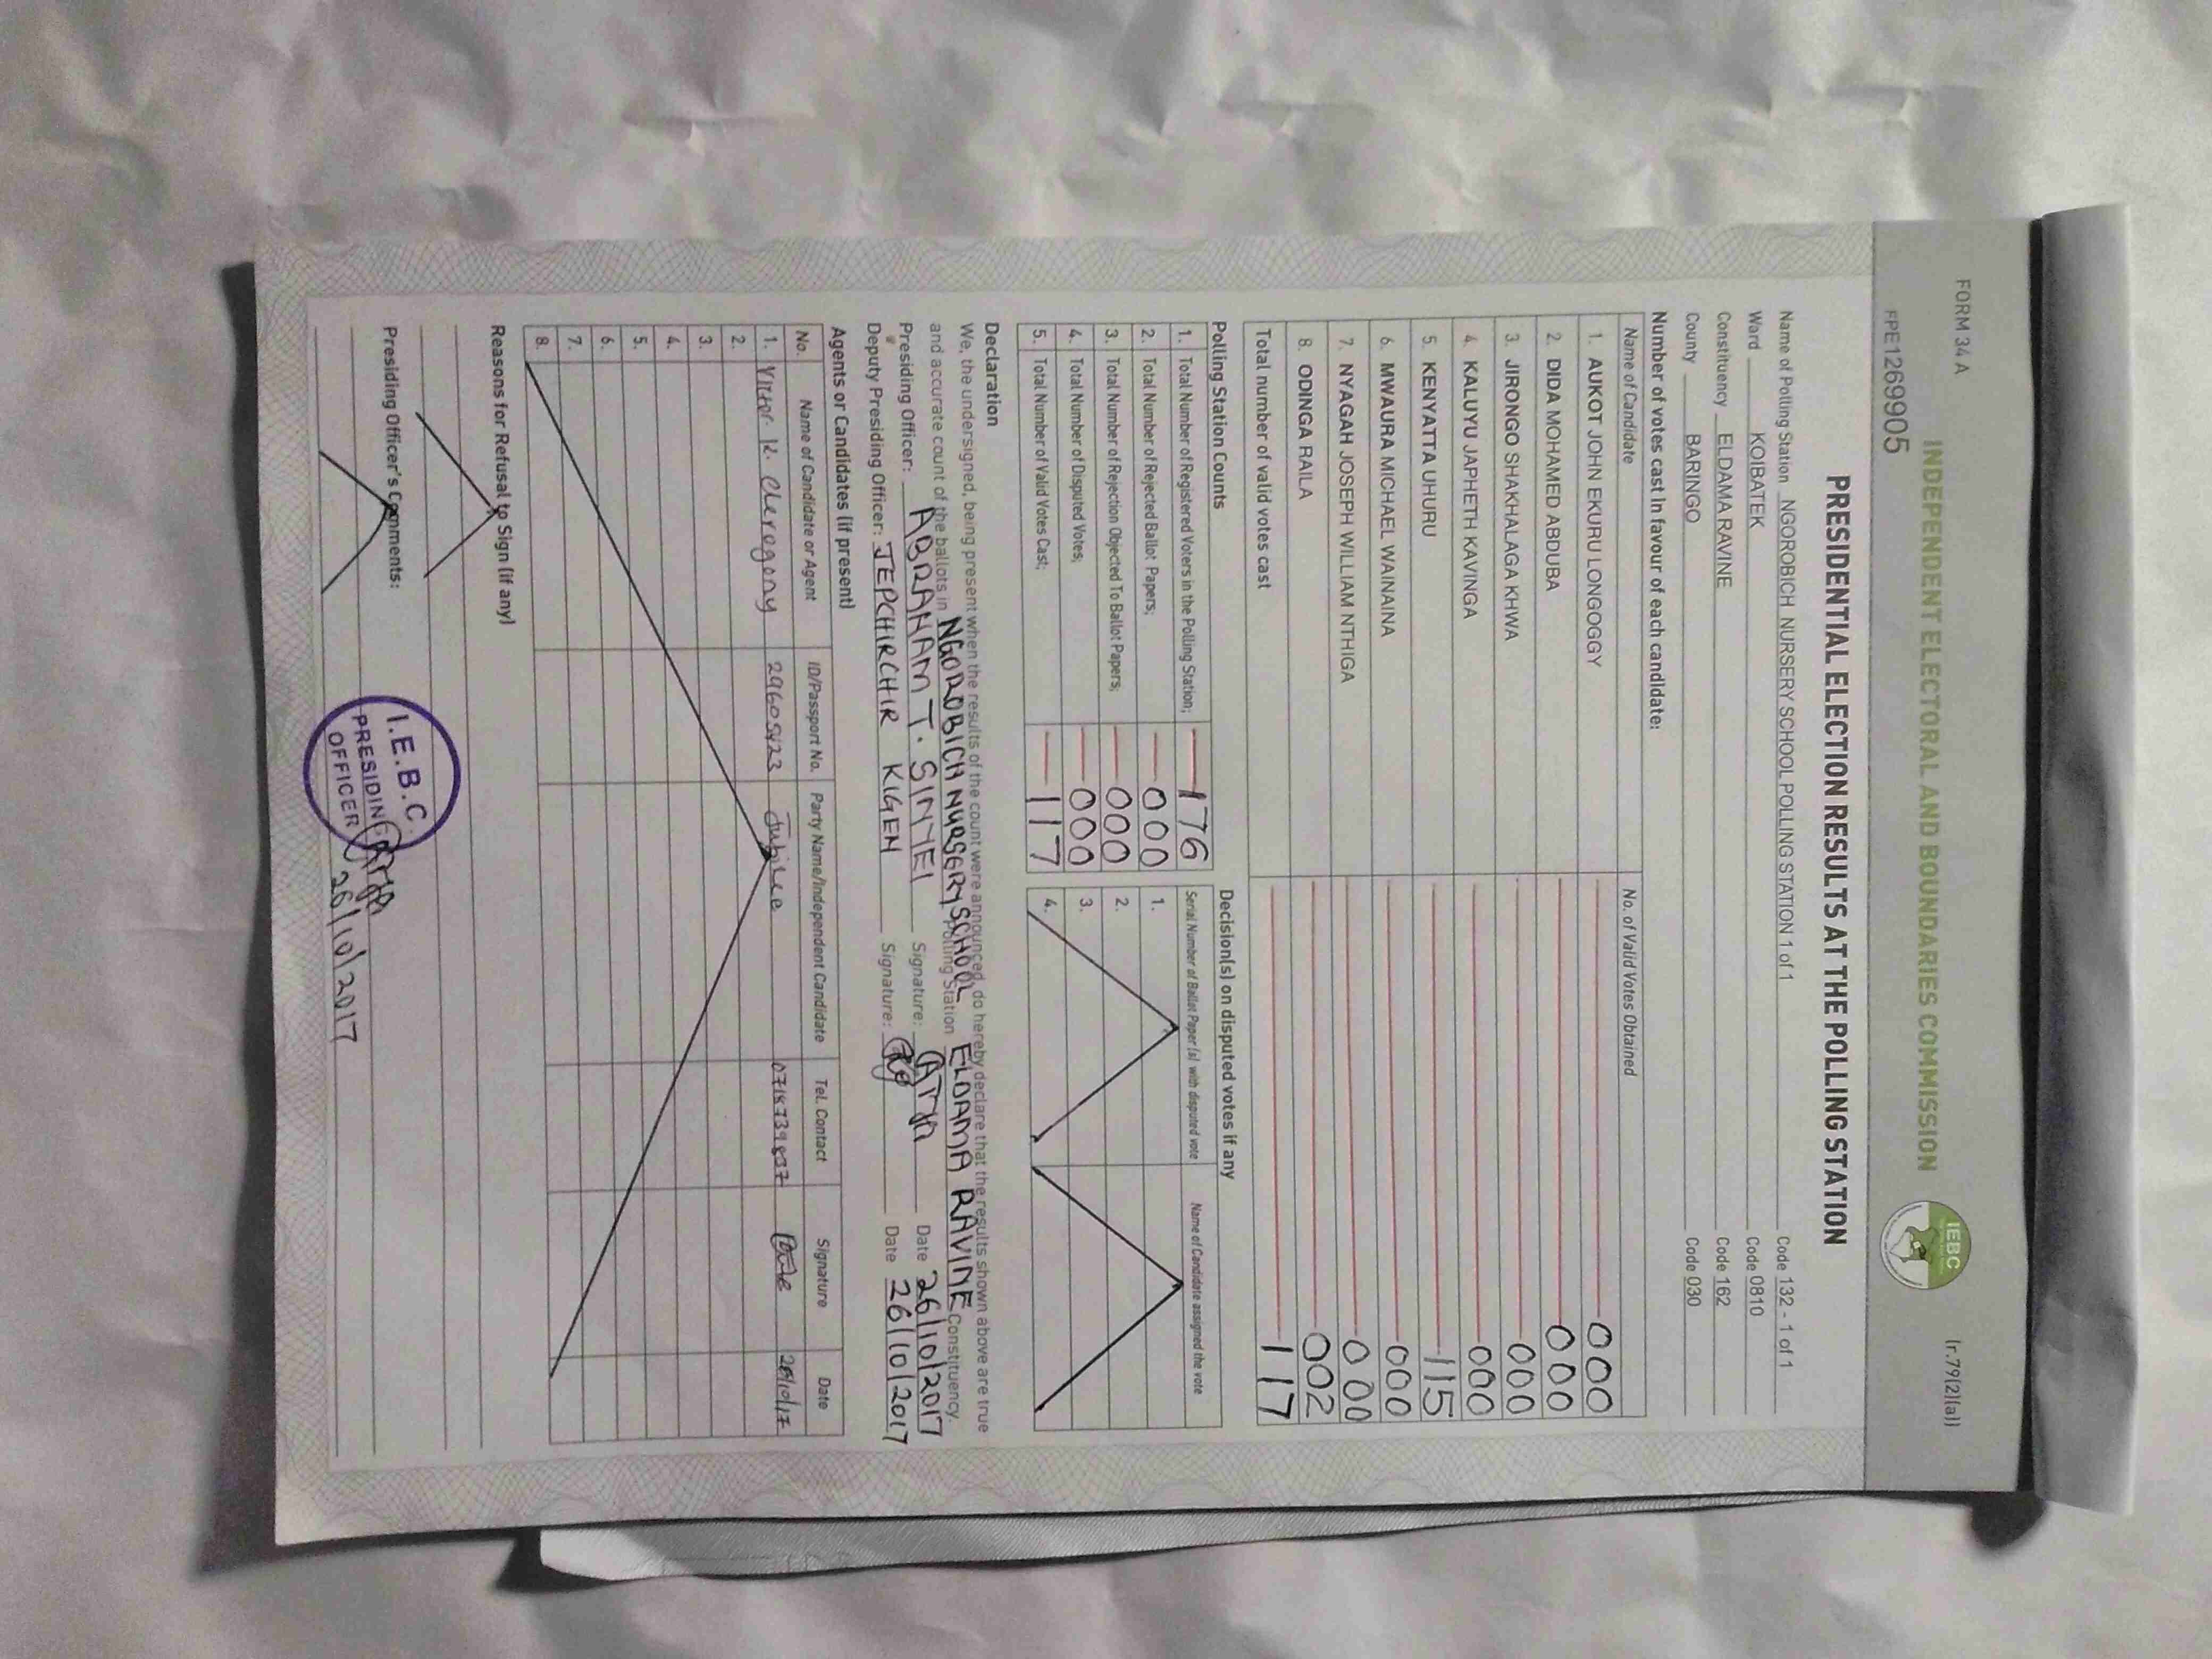 FORM 34 A
(r.79(2)(a))
INDEPENDENT ELECTORAL AND BOUNDARIES COMMISSION
IEBC
FPE1269905
PRESIDENTIAL ELECTION RESULTS AT THE POLLING STATION
Name of Polling Station NGOROBICH NURSERY SCHOOL POLLING STATION 1 of 1 Code 132 - 1 of 1
Ward KOIBATEK Code 0810
Constituency ELDAMA RAVINE Code 162
County BARINGO Code 030
Number of votes cast In favour of each candidate:
Name of Candidate No. of Valid Votes Obtained
1. AUKOT JOHN EKURU LONGOGGY 000
2. DIDA MOHAMED ABDUBA 000
3. JIRONGO SHAKHALAGA KHWA 000
4. KALUYU JAPHETH KAVINGA 000
5. KENYATTA UHURU 115
6. MWAURA MICHAEL WAINAINA 000
7. NYAGAH JOSEPH WILLIAM NTHIGA 000
8. ODINGA RAILA 002
Total number of valid votes cast 117
Polling Station Counts
1. Total Number of Registered Voters in the Polling Station; 176
2. Total Number of Rejected Ballot Papers; 000
3. Total Number of Rejection Objected To Ballot Papers; 000
4. Total Number of Disputed Votes; 000
5. Total Number of Valid Votes Cast; 117
Decision(s) on disputed votes if any
Serial Number of Ballot Paper (s) with disputed vote Name of Candidate assigned the vote
1.
2.
3.
4.
Declaration
We, the undersigned, being present when the results of the count were announced, do hereby declare that the results shown above are true
and accurate count of the ballots in NGOROBICH NURSERY SCHOOL Polling Station ELDAMA RAVINE Constituency.
Presiding Officer: ABRAHAM T. SINYEI Signature: Date 26/10/2017
Deputy Presiding Officer: JEPCHIRCHIR KIGEN Signature: Date 26/10/2017
Agents or Candidates (if present)
No. Name of Candidate or Agent ID/Passport No. Party Name/Independent Candidate Tel. Contact Signature Date
1. Victor K. Cherogony 29605423 Jubilee 26/10/17
2.
3.
4.
5.
6.
7.
8.
Reasons for Refusal to Sign (if any)
Presiding Officer's Comments:
I.E.B.C.
PRESIDING
OFFICER
26/10/2017